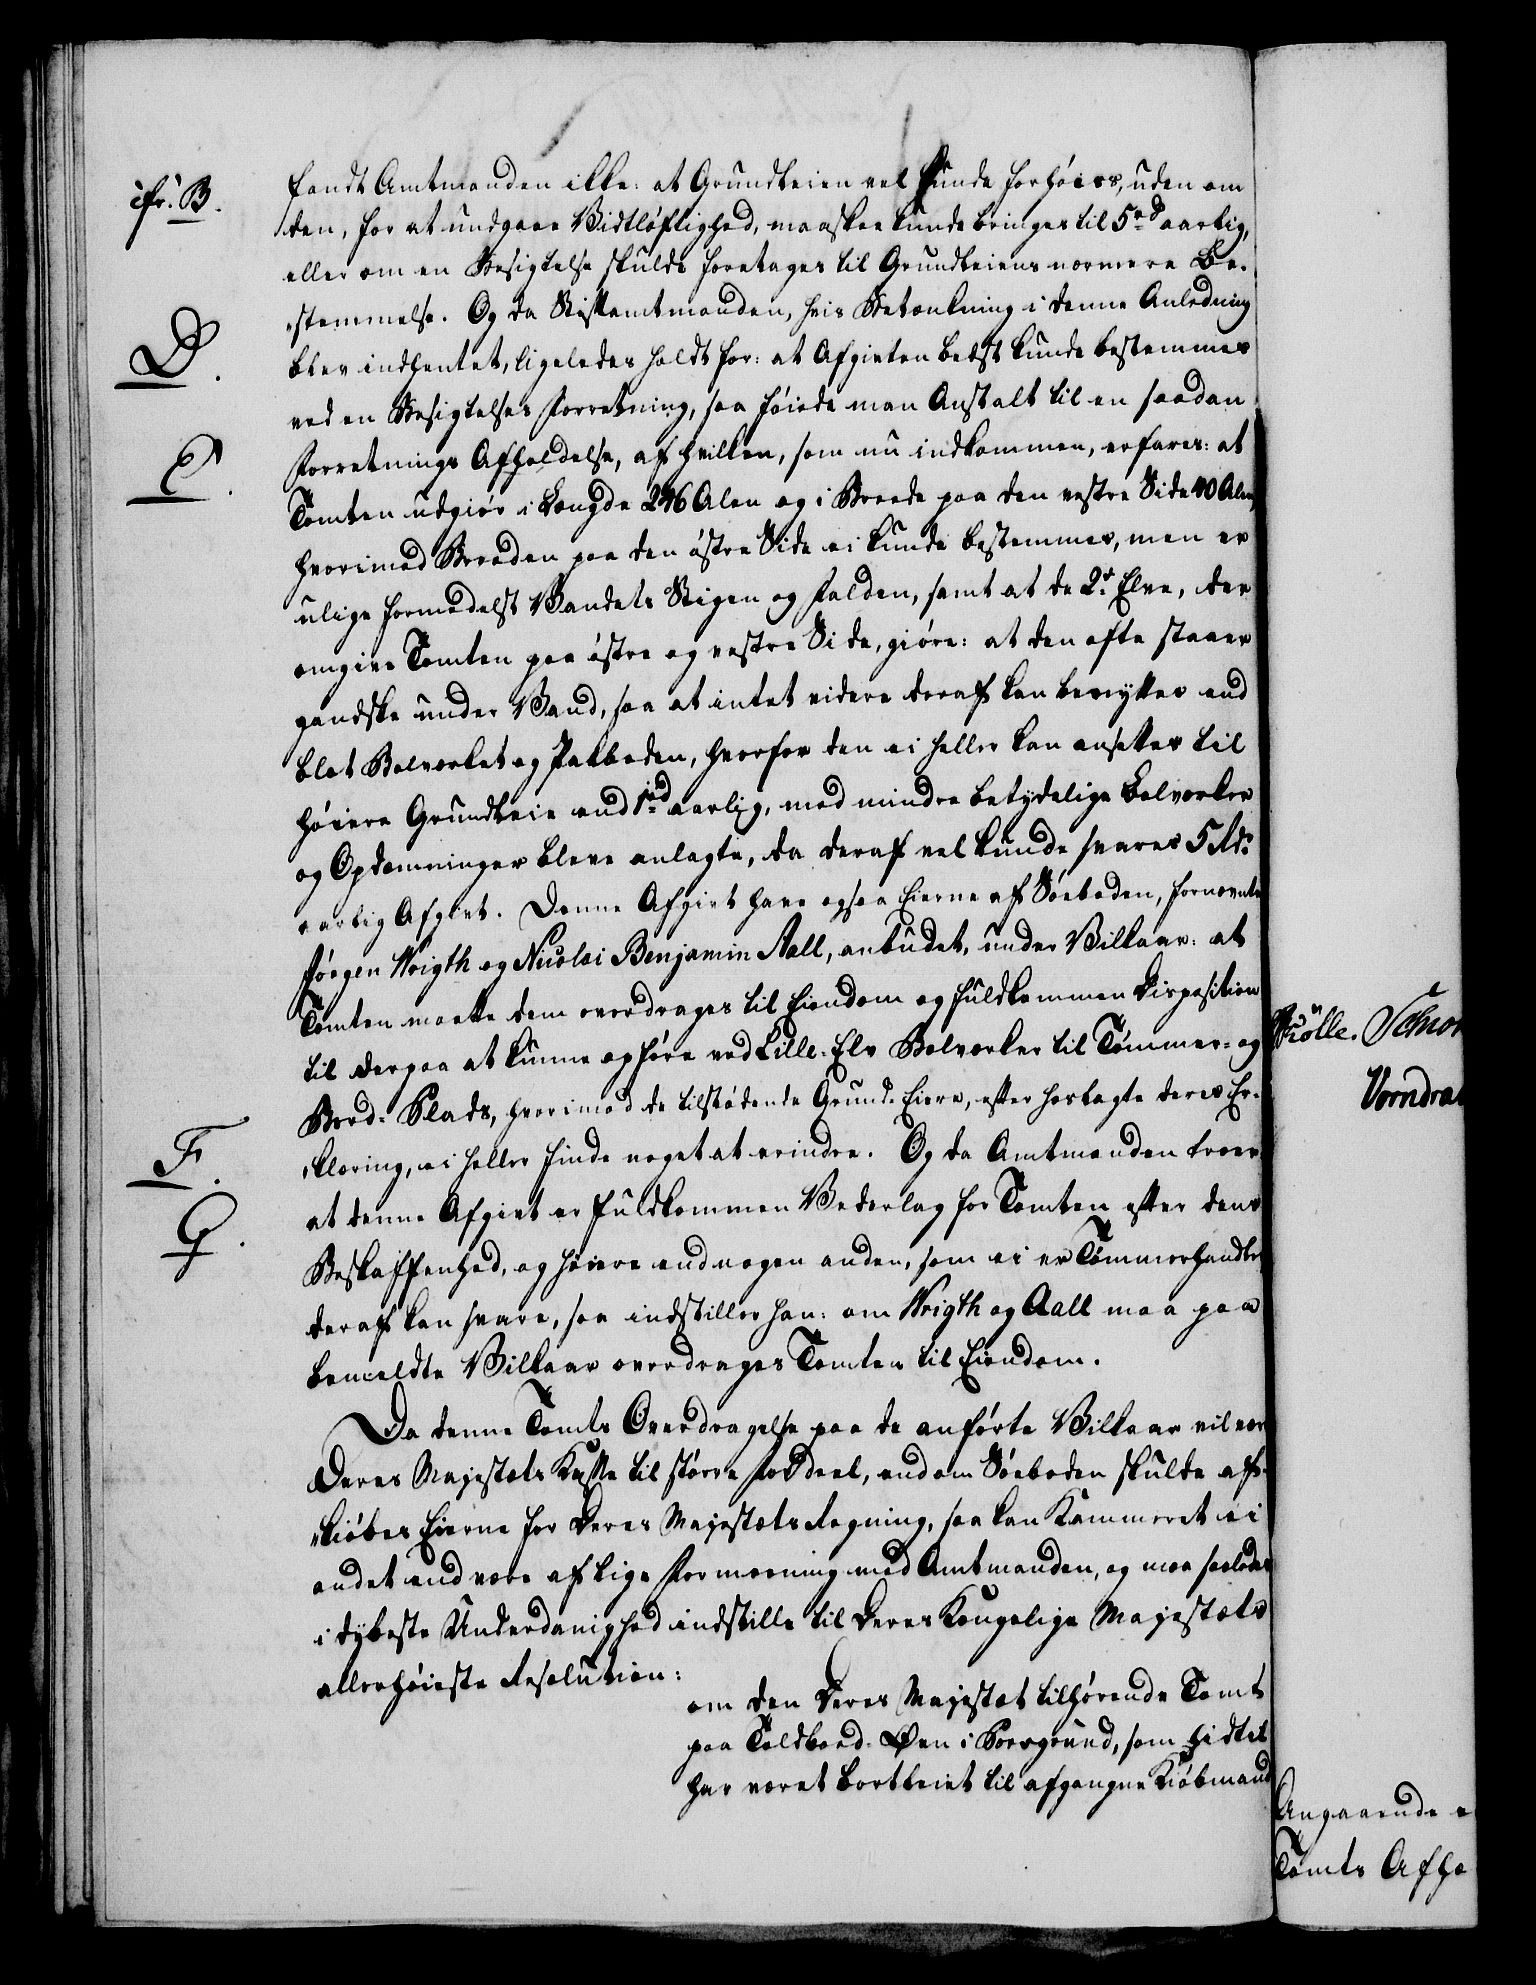 cfr. B.
fandt Amtmanden ikke: at Grundleien vel kunde forhøies, uden om
den, for at undgaae Vidtløftighed, maaskee kunde bringes til 5 rd aarlig,
eller om en Besigtelse skulde foretages til Grundleiens nærmere Be-
stemmelse. Og da Stiftamtmanden, hvis Betænkning i denne Anledning
D.
blev indhentet, ligeledes holdt for: at Afgivten bedst kunde bestemmes
ved en Besigtelses Forretning, saa føiede man Anstalt til en saadan
E.
Forretnings Afholdelse, af hvilken, som nu indkommen, erfares: at
Tomten udgiør i Længde 246 Alen og i Breede paa den vestre Side 40 Alen,
hvorimod Breeden paa den østre Side ei kunde bestemmes, men er
ulige formedelst Vandets Stigen og Falden, samt at de 2de Elve, der
omgive Tomten paa østre og vestre Side, giøre: at den ofte staaer
gandske under Vand, saa at intet videre deraf kan benyttes end
blot Bolverket og Pakboden, hvorfor den ei heller kan ansættes til
høiere Grundleie end 1 rd aarlig, med mindre betydelige Bolverker
og Opdæmninger bleve anlagte, da deraf vel kunde svares 5 Rdr
aarlig Afgivt. Denne Afgivt have ogsaa Eierne af Søeboden, fornævnte
Jørgen Wrigth og Nicolai Benjamin Aall, anbudet, under Vilkaar: at
Tomten maatte dem overdrages til Eiendom og fuldkommen Disposition
til derpaa at kunne opføre ved Lille-Elv Bolverker til Tømmer- og
Bord-Plads, hvorimod de tilstødende Grund-Eiere, efter herlagte deres Er-
F.
klæring, ei heller finde noget at erindre. Og da Amtmanden troer
at denne Afgivt er fuldkommen Vederlag for Tomten efter dens
G.
Beskaffenhed, og høiere end nogen anden, som ei er Tømmerhandler
deraf kan svare, saa indstiller han: om Wrigth og Aall maa paa
bemeldte Vilkaar overdrages Tomten til Eiendom.
Da denne Tomts Overdragelse paa de anførte Vilkaar vil vær
Deres Majestæts Kasse til større Fordeel, end om Søeboden skulde af-
kiøbes Eierne for Deres Majestæts Regning, saa kan Kammeret ei
andet end være af lige Formeening med Amtmanden, og maa saaledes
i dybeste Underdanighed indstille til Deres Kongelige Majestæts
allerhøieste Resolution:
om den Deres Majestæt tilhørende Tomt
paa Toldbod-Øen i Porsgrund, som hidtil
har været bortleiet til afgangne Kiøbmand
Angaaende e
Tomts Afhæ